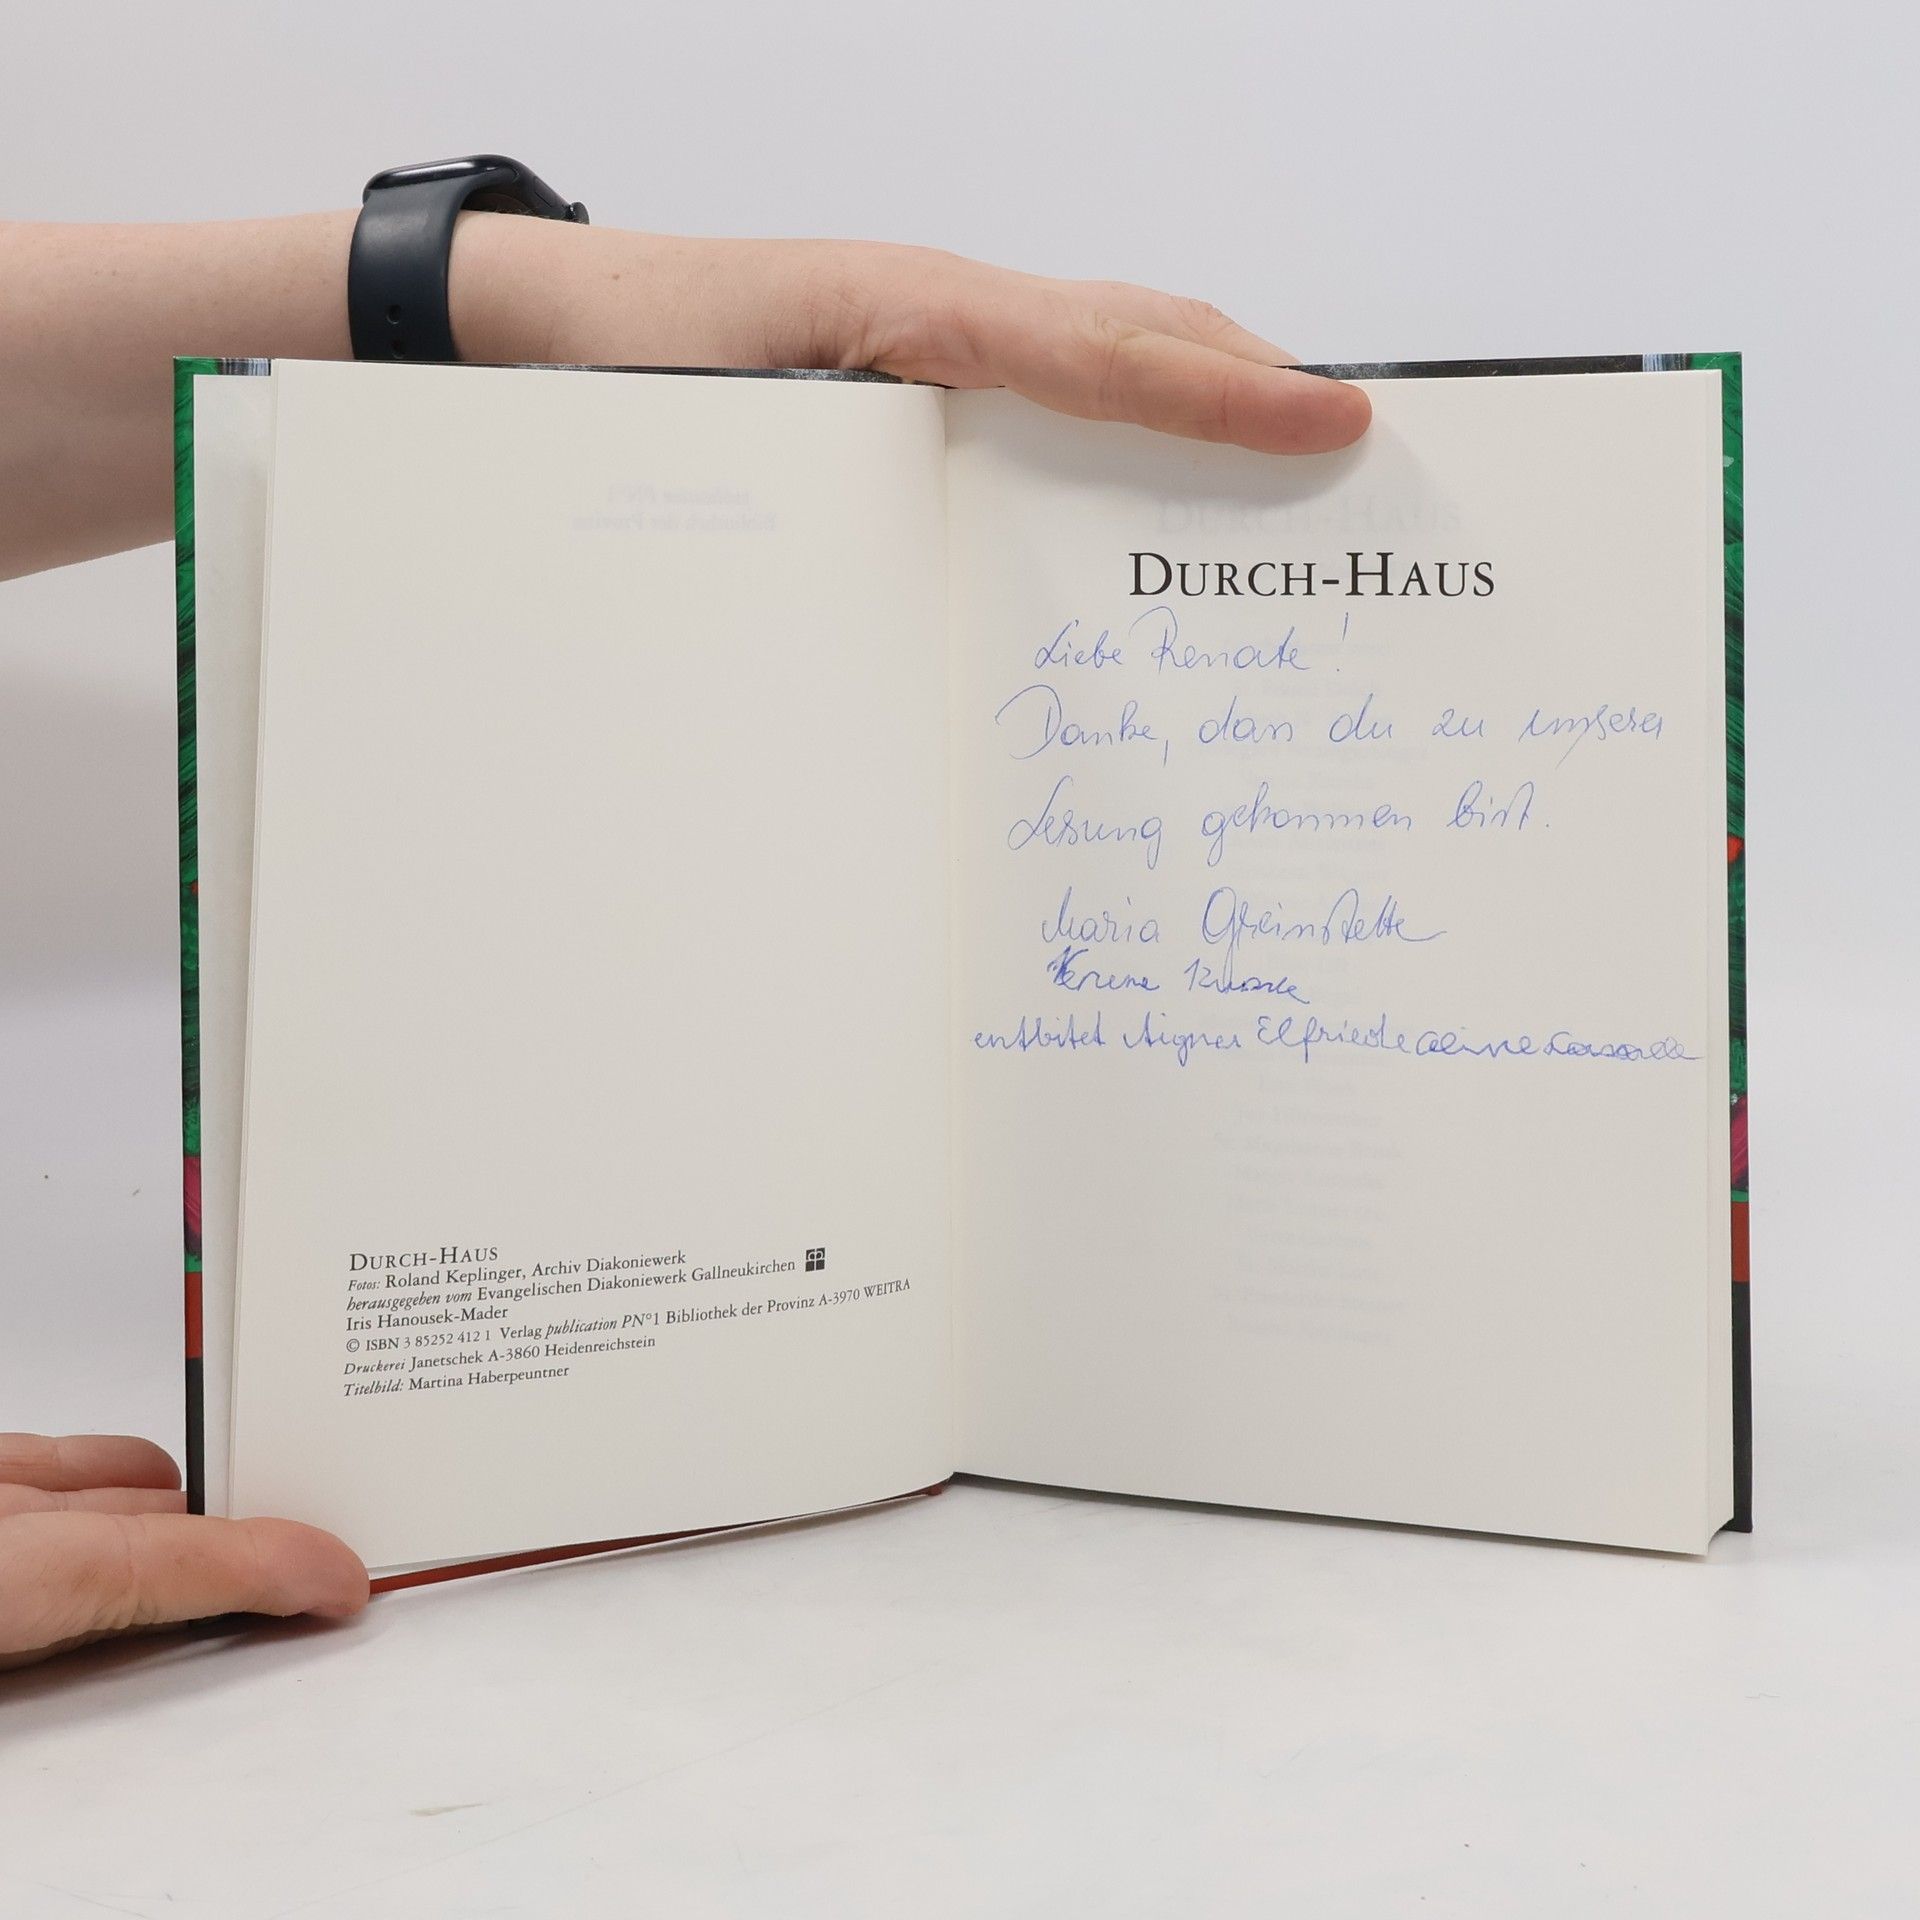 DURCH-HAUS
Fotos: Roland Keplinger, Archiv Diakoniewerk
herausgegeben vom Evangelischen Diakoniewerk Gallneukirchen
Iris Hanousek-Mader
© ISBN 3 85252 412 1 Verlag publication PN°1 Bibliothek der Provinz A-3970 WEITRA
Druckerei Janetschek A-3860 Heidenreichstein
Titelbild: Martina Haberpeuntner
DURCH-HAUS
Liebe Renate!
Danke, dass du zu unserer
Lesung gekommen bist.
Maria
entbitet Aigner Elfriede